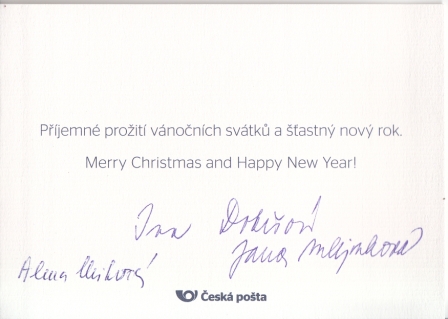 Příjemné prožití vánočních svátků a šťastný nový rok.
Merry Christmas and Happy New Year!
Iva
Jana
Alena
Česká pošta